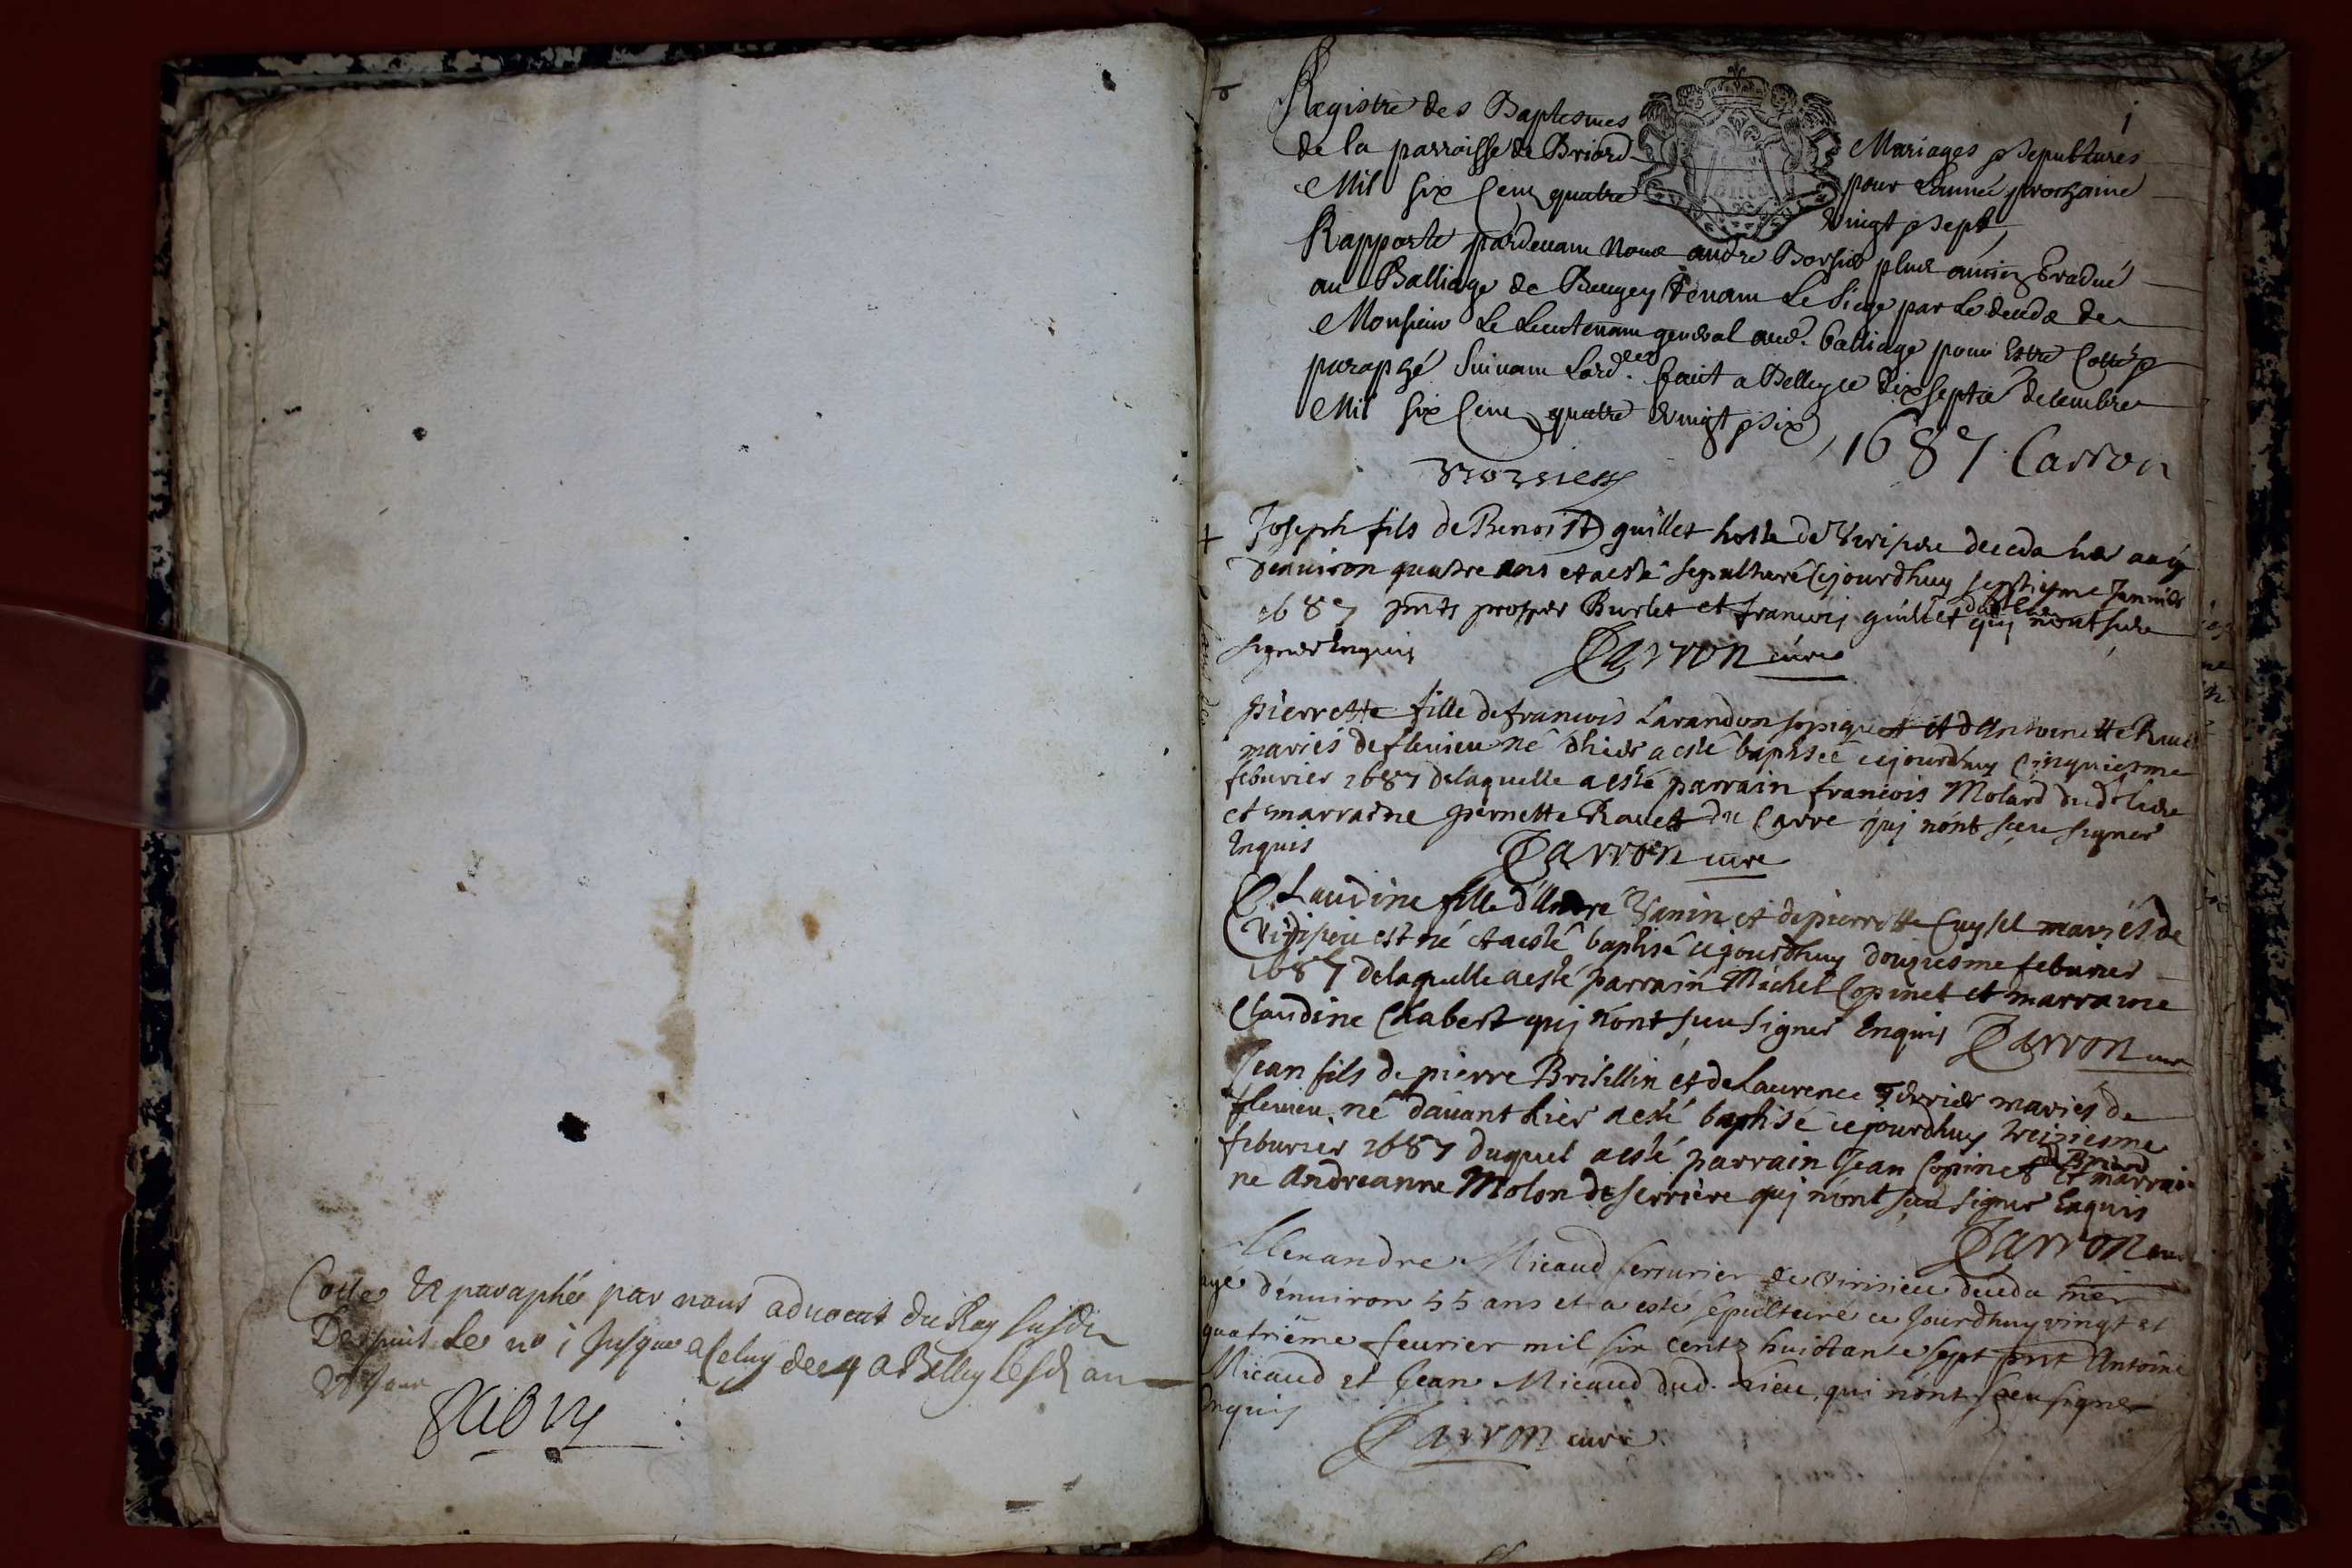 Cottes & paraphés par nous advocat du Roy susd.
Despuis le no 1 Jusques a Celuy de 4 a Belley lesd. an
& Jour
1
Registre des Baptesmes Mariages sepultures
de la parroisse de Briord pour Lannée prochaine
Mil six Cent quatre vingt sept
Rapporté pardevant Nous andre plus ancien Gradué
au Balliage de Beugey tenant Le Siege par Le deceds de
Monsieur Le Lieutenant general aud. balliage pour Estre Cotté &
paraphé Suivant Lord.ce fait a Belley ce dix septie decembre
Mil six Cent quatre vingt six
1687 Carron
+ Joseph fils de Benoist guillet hoste de deceda hier aagé
denviron quatre ans et a esté sepulturé cejourdhuy septiesme Janvier
1687 pnts prosper Burlet et francois guillet dud. lieu qui nont sceu
signer Enquis Carron curé
pierrette fille de francois Larandon et dAntoinette
mariés de flevieu né dhier a esté baptisée cejourdhuy Cinquiesme
febvrier 1687 de laquelle a esté parrain francois Molard dud. lieu
et marraine pernette Ravet du Carre qui nont sceu signer
Enquis Carron curé
Claudine fille dAndré Vanin et de pierrette Cuysel mariés de
est né et a esté baptisé cejourdhuy douziesme febvrier
1687 de laquelle a esté parrain Michel Copinet et marraine
Claudine Chabert qui nont sceu signer Enquis Carron curé
Jean fils de pierre Brisillin et de Laurence mariés de
flevieu né davant hier a esté baptisé cejourdhuy treiziesme
febvrier 1687 duquel a esté parrain Jean Copinet de Briord et marrai-
ne Andreanne Molon de serriere qui nont sceu signer Enquis
Carron curé
Alexandre Micaud serrurier de Virisieu deceda hier
agé dénviron 55 ans et a esté sepulturé ce Jourdhuy vingt et
quatriéme fevrier mil six cents huictante sept pnt Antoine
Micaud et Jean Micaud dud. Lieu, qui nont sceu signer
Enquis Carron curé